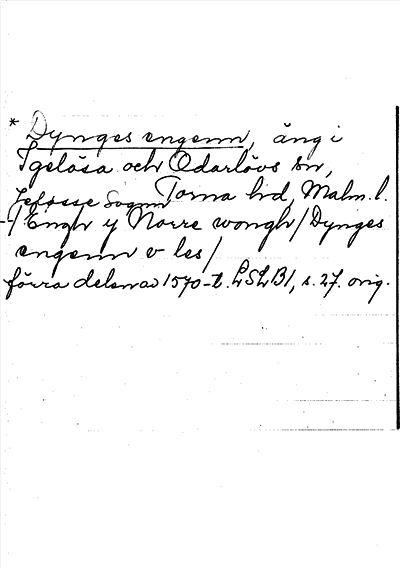 * Dynges engenn, äng i
Igelösa och Odarlövs sn,
Torna hd, Malm. l.
Jeføsse Sogen
-/ Engh y Norre wongh / Dynges
engenn v les /
förra delen av 1570-t. LSLB1, s. 27. orig.